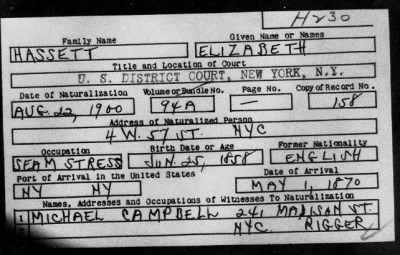 H230
Family Name Given Name or Names
HASSETT ELIZABETH
Title and Location of Court
U. S. DISTRICT COURT, NEW YORK, N.Y.
Date of Naturalization Volume or Bundle No. Page No. Copy of Record No.
AUG. 22, 1900 94A — 158
Address of Naturalized Person
4 W. 57 ST. NYC
Occupation Birth Date or Age Former Nationality
SEAMSTRESS JUN. 25, 1858 ENGLISH
Port of Arrival in the United States Date of Arrival
NY NY MAY 1, 1870
Names, Addresses and Occupations of Witnesses To Naturalization
1 MICHAEL CAMPBELL 241 MADISON ST.
NYC. RIGGER